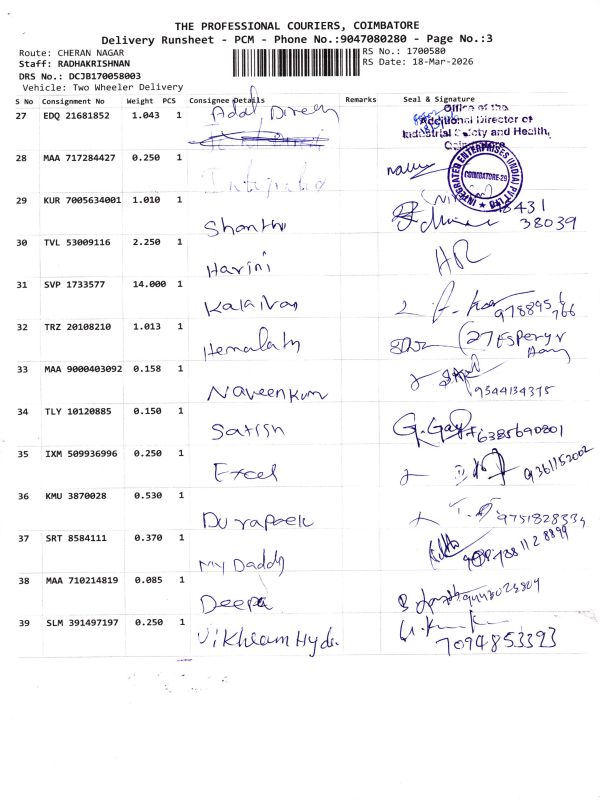 THE PROFESSIONAL COURIERS, COIMBATORE
Delivery Runsheet - PCM - Phone No.:9047080280 - Page No.:3
Route: CHERAN NAGAR
RS No.: 1700580
Staff: RADHAKRISHNAN
RS Date: 18-Mar-2026
DRS No.: DCJB170058003
Vehicle: Two Wheeler Delivery
S No Consignment No Weight PCS Consignee Details Remarks Seal & Signature
27 EDQ 21681852 1.043 1 Addl, Direct
Office of the
Additional Director of
Industrial Safety and Health,
Coimbatore
28 MAA 717284427 0.250 1 Integrated
INTEGRATED ENTERPRISES (INDIA) PVT LTD
COIMBATORE-29
29 KUR 7005634001 1.010 1 Shanthi
38039
30 TVL 53009116 2.250 1 Harini HR
31 SVP 1733577 14.000 1 Kalaivan
32 TRZ 20108210 1.013 1 Hemalath
33 MAA 9000403092 0.158 1 Naveenkum 9344134375
34 TLY 10120885 0.150 1 Satish 6385690801
35 IXM 509936996 0.250 1 Excel 9361152002
36 KMU 3870028 0.530 1 Durapack
37 SRT 8584111 0.370 1 My Daddy
38 MAA 710214819 0.085 1 Deepa
39 SLM 391497197 0.250 1 Vikhram Hyde. 7094853393